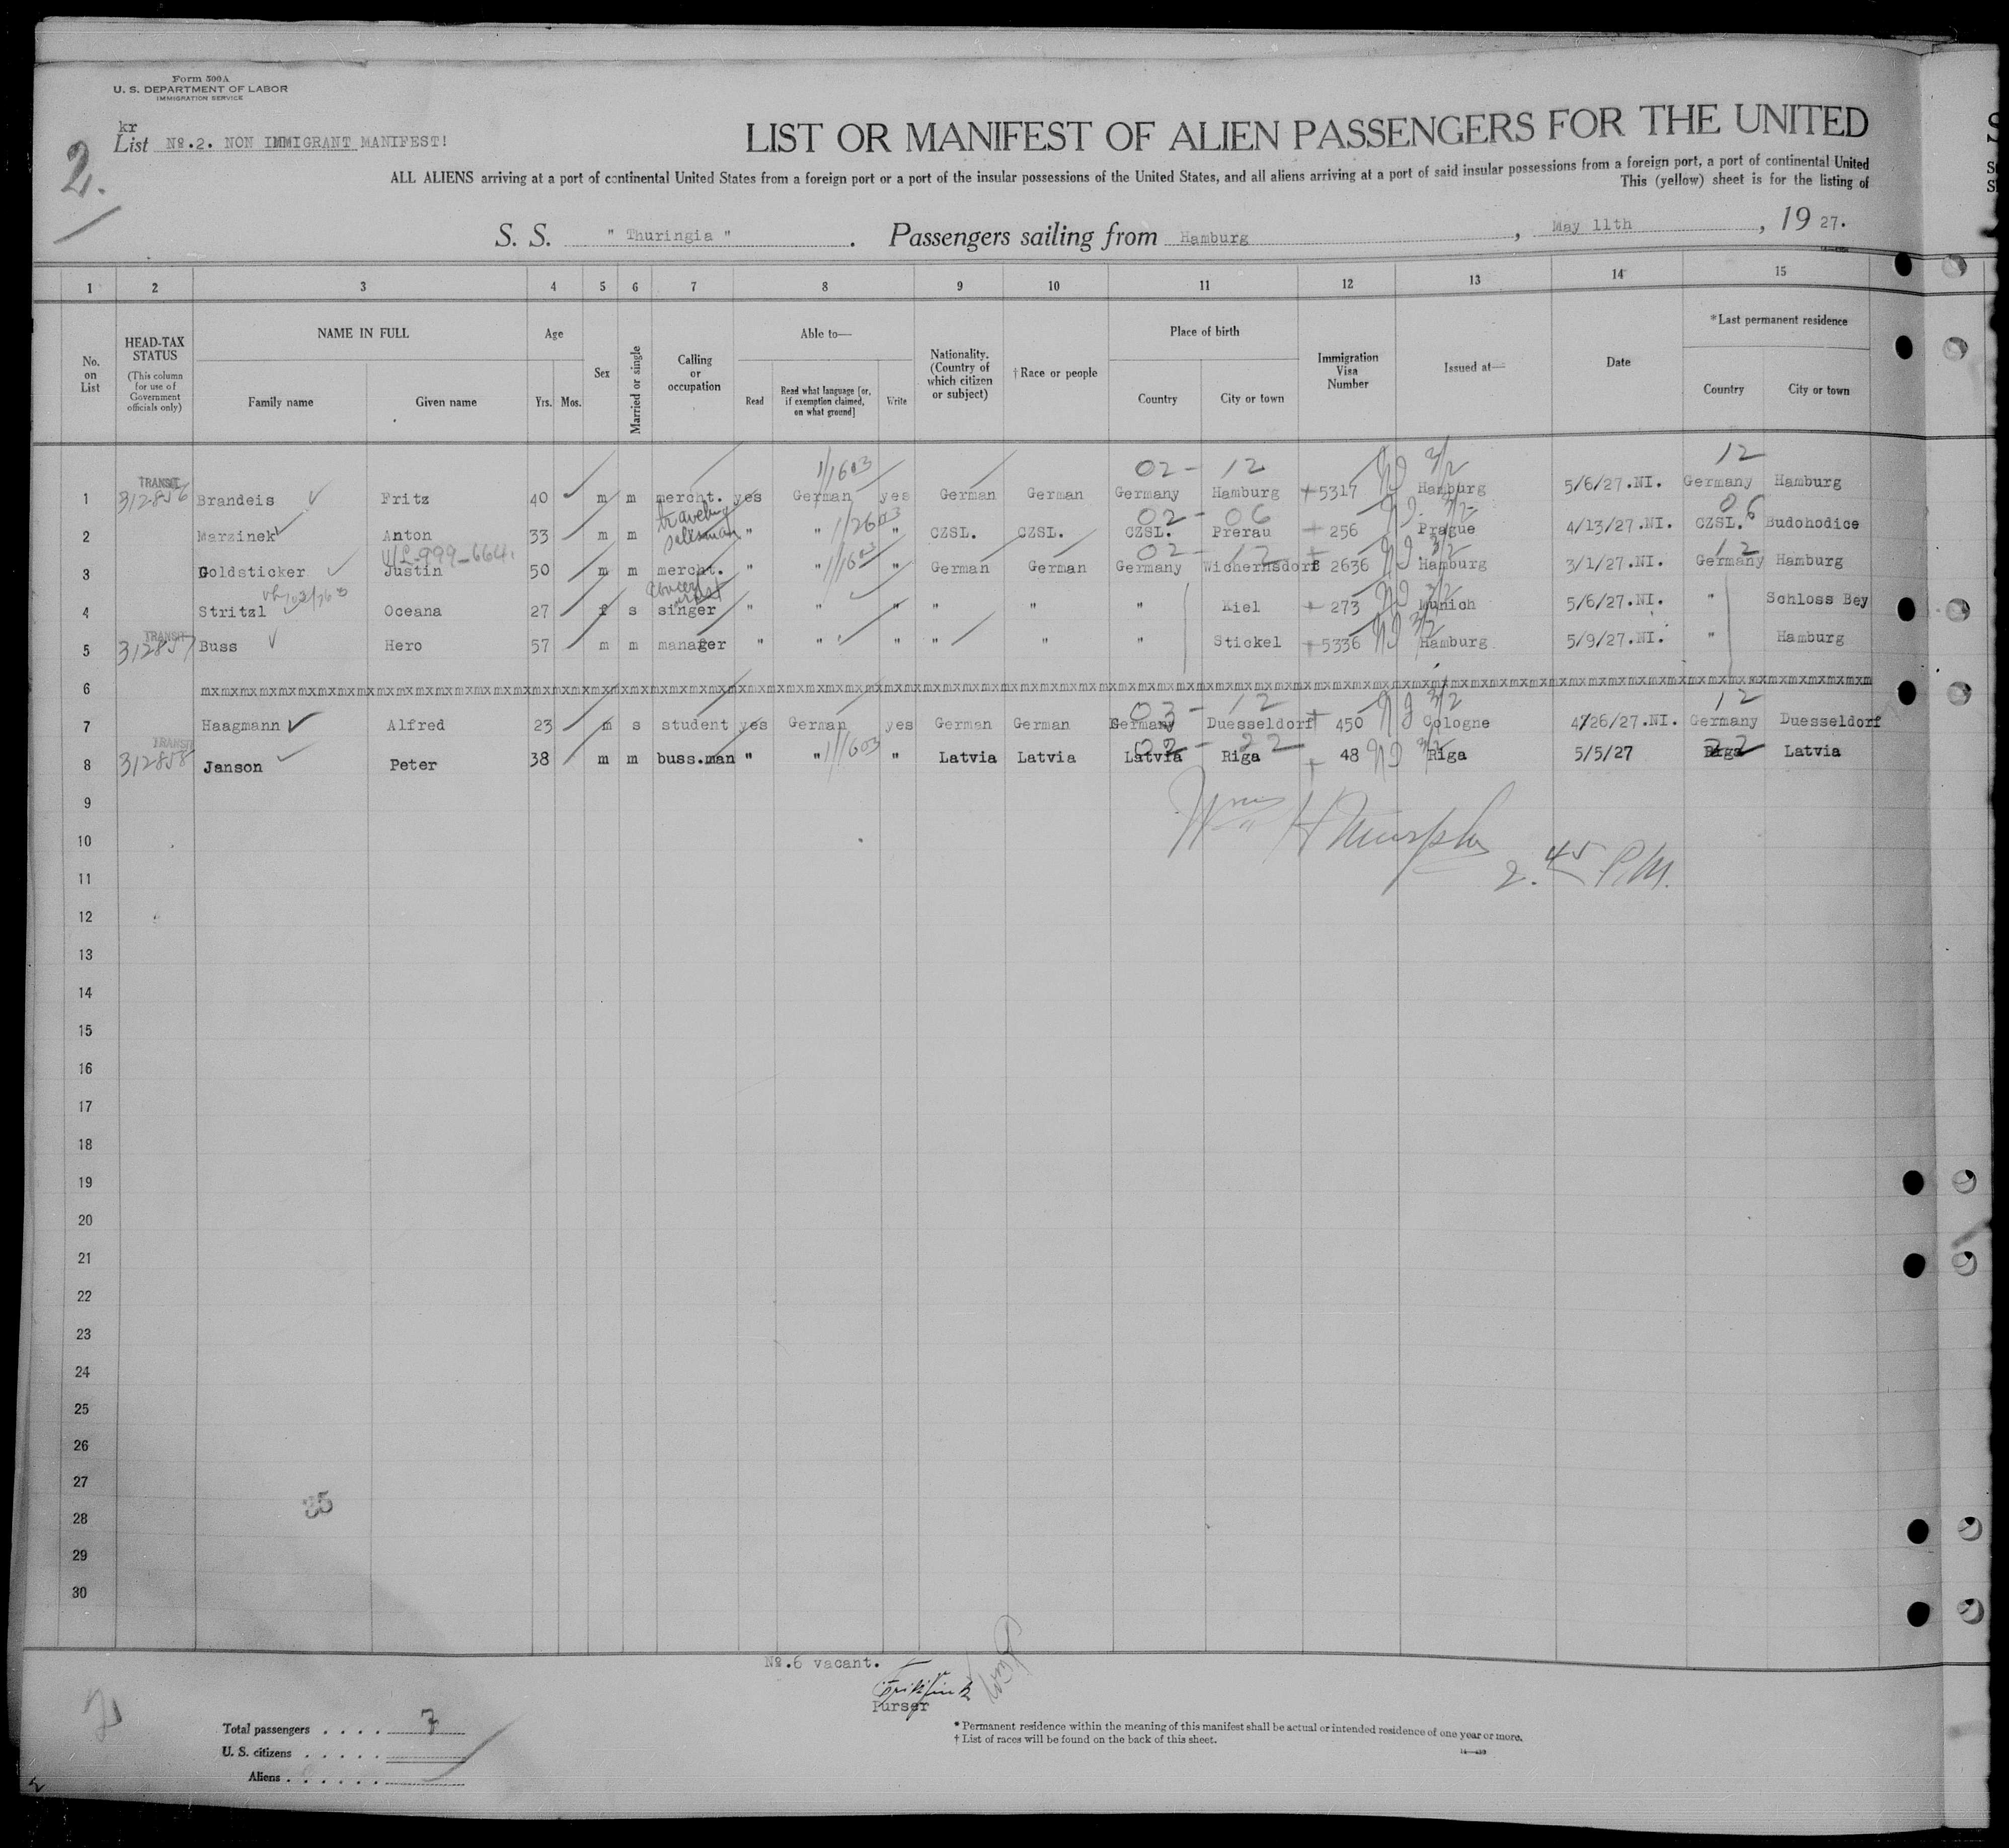 Form 500A
U. S. DEPARTMENT OF LABOR
IMMIGRATION SERVICE
kr
List No.2. NON IMMIGRANT MANIFEST!
2.
LIST OR MANIFEST OF ALIEN PASSENGERS FOR THE UNITED
ALL ALIENS arriving at a port of continental United States from a foreign port or a port of the insular possessions of the United States, and all aliens arriving at a port of said insular possessions from a foreign port, a port of continental United
This (yellow) sheet is for the listing of
S. S. " Thuringia ". Passengers sailing from Hamburg, May 11th, 19 27.
1 2 3 4 5 6 7 8 9 10 11 12 13 14 15
No. on List
HEAD-TAX STATUS (This column for use of Government officials only)
NAME IN FULL Family name Given name
Age Yrs. Mos.
Sex
Married or single
Calling or occupation
Able to— Read Read what language [or, if exemption claimed, on what ground] Write
Nationality. (Country of which citizen or subject)
†Race or people
Place of birth Country City or town
Immigration Visa Number
Issued at—
Date
*Last permanent residence Country City or town
1/1603 02 - 12 3/2 12
1 TRANSIT 312856 Brandeis Fritz 40 m m mercht. yes German yes German German Germany Hamburg 5317 Hamburg 5/6/27.NI. Germany Hamburg
traveling salesman 1/2603 02 - 06 3/2 06
2 Marzinek Anton 33 m m " " " CZSL. CZSL. CZSL. Prerau 256 Prague 4/13/27.NI. CZSL. Budohodice
999-664 1/1603 02 - 12 3/2 12
3 Goldsticker Justin 50 m m mercht. " " " German German Germany Wichernsdorf 2636 Hamburg 3/1/27.NI. Germany Hamburg
concert
4 Stritzl Oceana 27 f s singer " " " " " " Kiel 273 Munich 5/6/27.NI. " Schloss Bey
5 TRANSIT 312857 Buss Hero 57 m m manager " " " " " " Stickel 5336 Hamburg 5/9/27.NI. " Hamburg
6 mxmxmxmxmxmxmxmxmxmxmxmxmxmxmxmxmxmxmxmxmxmxmxmxmxmxmxmxmxmxmxmxmxmxmxmxmxmxmxmxmxmxmxmxm
03 - 12 3/2 12
7 Haagmann Alfred 23 m s student yes German yes German German Germany Duesseldorf 450 Cologne 4/26/27.NI. Germany Duesseldorf
1/1603 02 - 22 3/2 22
8 TRANSIT 312858 Janson Peter 38 m m buss.man " " " Latvia Latvia Latvia Riga 48 Riga 5/5/27 Riga Latvia
9
Wm H Murphy
10
2.45 P.M.
11
12
13
14
15
16
17
18
19
20
21
22
23
24
25
26
27
35
28
29
30
No.6 vacant.
Purser
Total passengers . . . . 7
U. S. citizens . . . . .
Aliens . . . . . .
* Permanent residence within the meaning of this manifest shall be actual or intended residence of one year or more.
† List of races will be found on the back of this sheet.